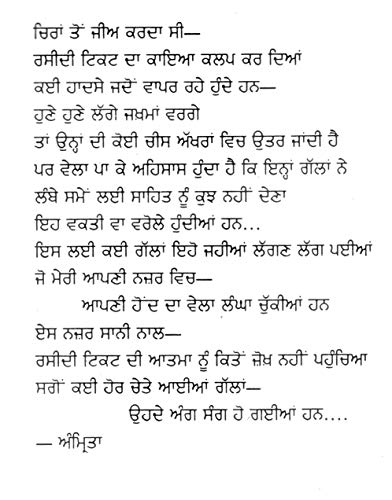 ਚਿਰਾਂ ਤੋਂ ਜੀਅ ਕਰਦਾ ਸੀ—
ਰਸੀਦੀ ਟਿਕਟ ਦਾ ਕਾਇਆ ਕਲਪ ਕਰ ਦਿਆਂ
ਕਈ ਹਾਦਸੇ ਜਦੋਂ ਵਾਪਰ ਰਹੇ ਹੁੰਦੇ ਹਨ—
ਹੁਣੇ ਹੁਣੇ ਲੱਗੇ ਜਖ਼ਮਾਂ ਵਰਗੇ
ਤਾਂ ਉਨ੍ਹਾਂ ਦੀ ਕੋਈ ਚੀਸ ਅੱਖਰਾਂ ਵਿਚ ਉਤਰ ਜਾਂਦੀ ਹੈ
ਪਰ ਵੇਲਾ ਪਾ ਕੇ ਅਹਿਸਾਸ ਹੁੰਦਾ ਹੈ ਕਿ ਇਨ੍ਹਾਂ ਗੱਲਾਂ ਨੇ
ਲੰਬੇ ਸਮੇਂ ਲਈ ਸਾਹਿਤ ਨੂੰ ਕੁਝ ਨਹੀਂ ਦੇਣਾ
ਇਹ ਵਕਤੀ ਵਾ ਵਰੋਲੇ ਹੁੰਦੀਆਂ ਹਨ...
ਇਸ ਲਈ ਕਈ ਗੱਲਾਂ ਇਹੋ ਜਹੀਆਂ ਲੱਗਣ ਲੱਗ ਪਈਆਂ
ਜੋ ਮੇਰੀ ਆਪਣੀ ਨਜ਼ਰ ਵਿਚ—
ਆਪਣੀ ਹੋਂਦ ਦਾ ਵੇਲਾ ਲੰਘਾ ਚੁੱਕੀਆਂ ਹਨ
ਏਸ ਨਜ਼ਰ ਸਾਨੀ ਨਾਲ—
ਰਸੀਦੀ ਟਿਕਟ ਦੀ ਆਤਮਾ ਨੂੰ ਕਿਤੋਂ ਜ਼ੋਖ਼ ਨਹੀਂ ਪਹੁੰਚਿਆ
ਸਗੋਂ ਕਈ ਹੋਰ ਚੇਤੇ ਆਈਆਂ ਗੱਲਾਂ—
ਉਹਦੇ ਅੰਗ ਸੰਗ ਹੋ ਗਈਆਂ ਹਨ....
— ਅੰਮ੍ਰਿਤਾ